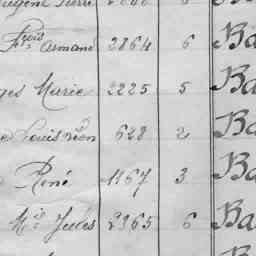 Fçois Armand 2864 6 Ba
ges Marie 2225 5 Ba
Louis 628 2 Ba
René 1167 3 Ba
Jules 2365 6 Ba